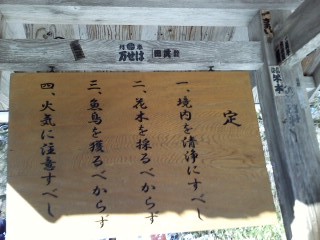 定
一、境内を清浄にすべし
二、花木を採るべからず
三、魚鳥を獲るべからず
四、火気に注意すべし